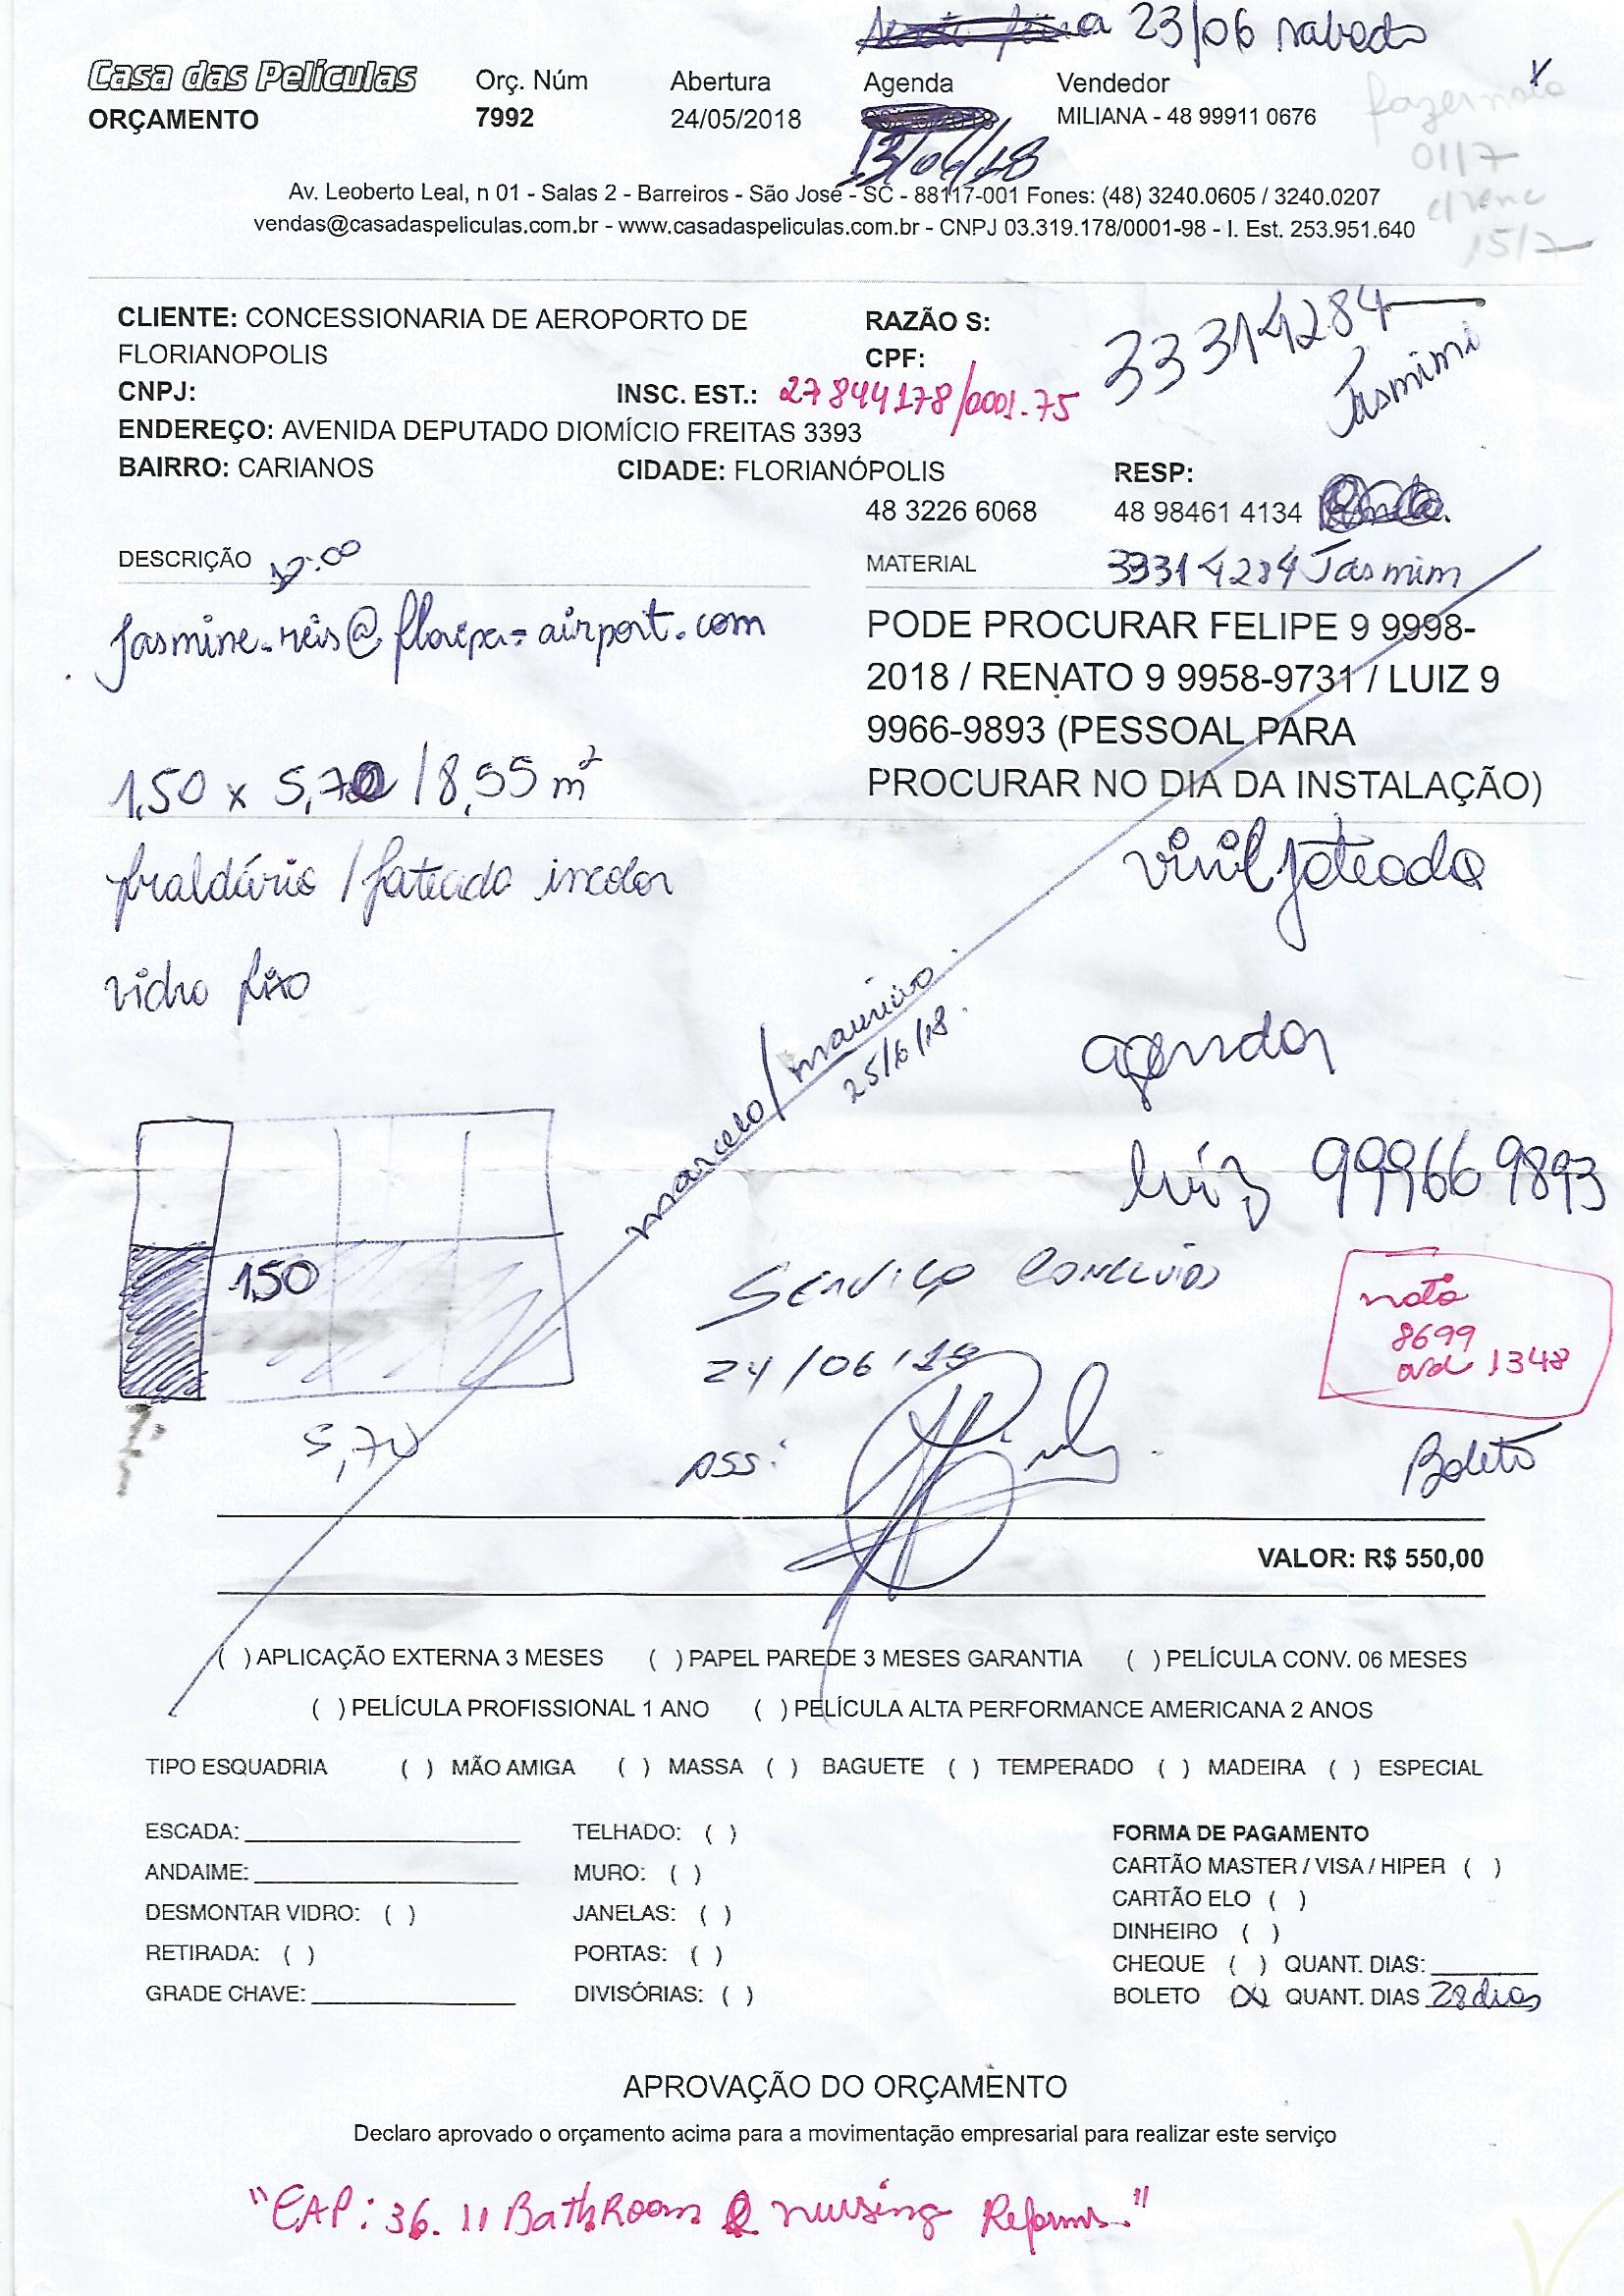 23/06 sabado
Casa das Películas
Orç. Núm
Abertura
Agenda
Vendedor
ORÇAMENTO
7992
24/05/2018
MILIANA - 48 99911 0676
13/06/18
fazer nota
01/7
c/ venc
15/2
Av. Leoberto Leal, n 01 - Salas 2 - Barreiros - São José - SC - 88117-001 Fones: (48) 3240.0605 / 3240.0207
vendas@casadaspeliculas.com.br - www.casadaspeliculas.com.br - CNPJ 03.319.178/0001-98 - I. Est. 253.951.640
CLIENTE: CONCESSIONARIA DE AEROPORTO DE
FLORIANOPOLIS
RAZÃO S:
CPF:
33314284
Jasmimi
CNPJ:
INSC. EST.: 27844178/0001.75
ENDEREÇO: AVENIDA DEPUTADO DIOMÍCIO FREITAS 3393
BAIRRO: CARIANOS
CIDADE: FLORIANÓPOLIS
RESP:
48 3226 6068
48 98461 4134
DESCRIÇÃO
MATERIAL
33314284 Jasmim
Jasmine.reis@floripa-airport.com
PODE PROCURAR FELIPE 9 9998-
2018 / RENATO 9 9958-9731 / LUIZ 9
9966-9893 (PESSOAL PARA
PROCURAR NO DIA DA INSTALAÇÃO)
1,50 x 5,70 / 8,55 m²
fraldário / jateado incolor
vidro fixo
vinil jateado
marcelo / mauricio
25/6/18.
agendar
luiz 999669893
1,50
5,70
Serviço concluido
24/06/18
ASS:
nota
8699
osd 1348
Boleto
VALOR: R$ 550,00
( ) APLICAÇÃO EXTERNA 3 MESES ( ) PAPEL PAREDE 3 MESES GARANTIA ( ) PELÍCULA CONV. 06 MESES
( ) PELÍCULA PROFISSIONAL 1 ANO ( ) PELÍCULA ALTA PERFORMANCE AMERICANA 2 ANOS
TIPO ESQUADRIA ( ) MÃO AMIGA ( ) MASSA ( ) BAGUETE ( ) TEMPERADO ( ) MADEIRA ( ) ESPECIAL
ESCADA:
ANDAIME:
DESMONTAR VIDRO: ( )
RETIRADA: ( )
GRADE CHAVE:
TELHADO: ( )
MURO: ( )
JANELAS: ( )
PORTAS: ( )
DIVISÓRIAS: ( )
FORMA DE PAGAMENTO
CARTÃO MASTER / VISA / HIPER ( )
CARTÃO ELO ( )
DINHEIRO ( )
CHEQUE ( ) QUANT. DIAS:
BOLETO (X) QUANT. DIAS 28 dias
APROVAÇÃO DO ORÇAMENTO
Declaro aprovado o orçamento acima para a movimentação empresarial para realizar este serviço
"EAP: 36.11 BathRoom & nursing Reforms."